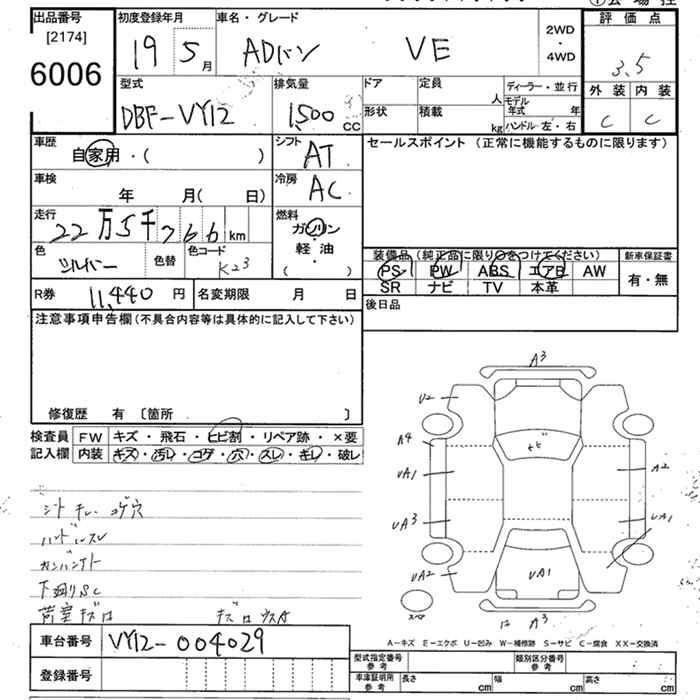 出品番号
[2174]
6006
初度登録年月
19 5月
車名・グレード
ADバン VE
2WD
・
4WD
評価点
3.5
外装 内装
C C
型式
DBF-VY12
排気量
1500 CC
ドア 定員 人
形状 積載 kg
ディーラー・並行
モデル年式 年
ハンドル 左・右
車歴
自家用・( )
シフト
AT
セールスポイント (正常に機能するものに限ります)
車検
年 月( 日)
冷房
AC
走行
22万5千766km
燃料
ガソリン
・
軽油
・
( )
色
シルバー
色替
色コード
K23
装備品(純正品に限り○をつけてください)
新車保証書
PS PW ABS エアB AW
SR ナビ TV 本革
有・無
R券 11,440円
名変期限 月 日
後日品
注意事項申告欄(不具合内容等は具体的に記入して下さい)
修復歴 有 〔箇所 〕
検査員 FW キズ・飛石・ヒビ割・リペア跡・×要
記入欄 内装 キズ・汚レ・コゲ・穴・スレ・キレ・破レ
A3
U2
A4
ヒビ
UA1
A2
UA3
UA1
UA2
UA1
スペア
A3
シート キレ コゲ穴
ハンドルスレ
下廻りSC
荷室キズ
車台番号 VY12-004029
登録番号
A-キズ E-エクボ U-凹み W-補修跡 S-サビ C-腐食 XX-交換済
型式指定番号 参考
類別区分番号 参考
車庫証明用 参考
長さ cm 幅 cm 高さ cm